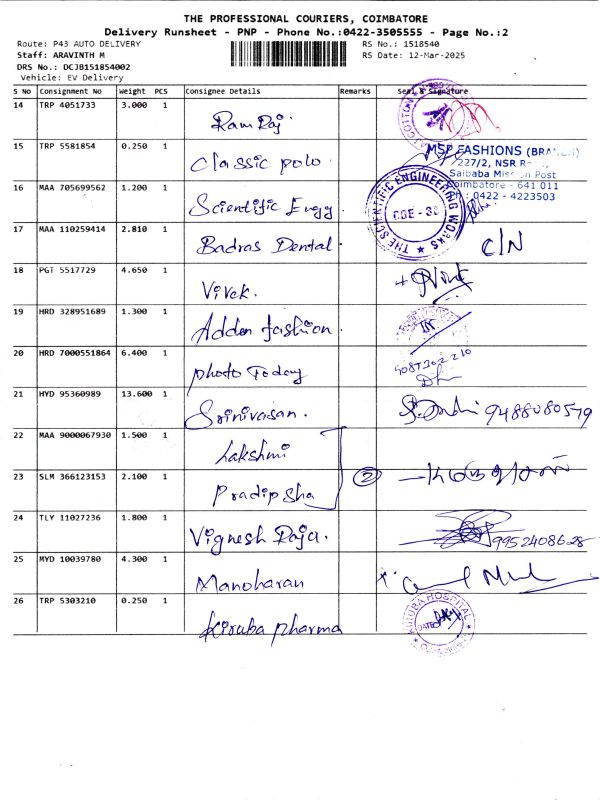 THE PROFESSIONAL COURIERS, COIMBATORE
Delivery Runsheet - PNP - Phone No.:0422-3505555 - Page No.:2
Route: P43 AUTO DELIVERY RS No.: 1518540
Staff: ARAVINTH M RS Date: 12-Mar-2025
DRS No.: DCJB151854002
Vehicle: EV Delivery
S No Consignment No Weight PCS Consignee Details Remarks Seal & Signature
14 TRP 4051733 3.000 1 Ram Raj
15 TRP 5581854 0.250 1 Classic polo
MSP FASHIONS (BRANCH)
227/2, NSR
Saibaba Mission Post
Coimbatore - 641 011
Ph : 0422 - 4223503
16 MAA 705699562 1.200 1 Scientific Engg.
THE SCIENTIFIC ENGINEERING WORKS
17 MAA 110259414 2.810 1 Badras Dental C/N
18 PGT 5517729 4.650 1 Vivek.
19 HRD 328951689 1.300 1 Adden fashion
20 HRD 7000551864 6.400 1 photo Today
21 HYD 95360989 13.600 1 Srinivasan. 9488080579
22 MAA 9000067930 1.500 1 Lakshmi
23 SLM 366123153 2.100 1 Pradip sha 2
24 TLY 11027236 1.800 1 Vignesh Raja. 9952408628
25 MYD 10039780 4.300 1 Manoharan
26 TRP 5303210 0.250 1 Kiruba pharma
KIRUBA HOSPITAL
DATE